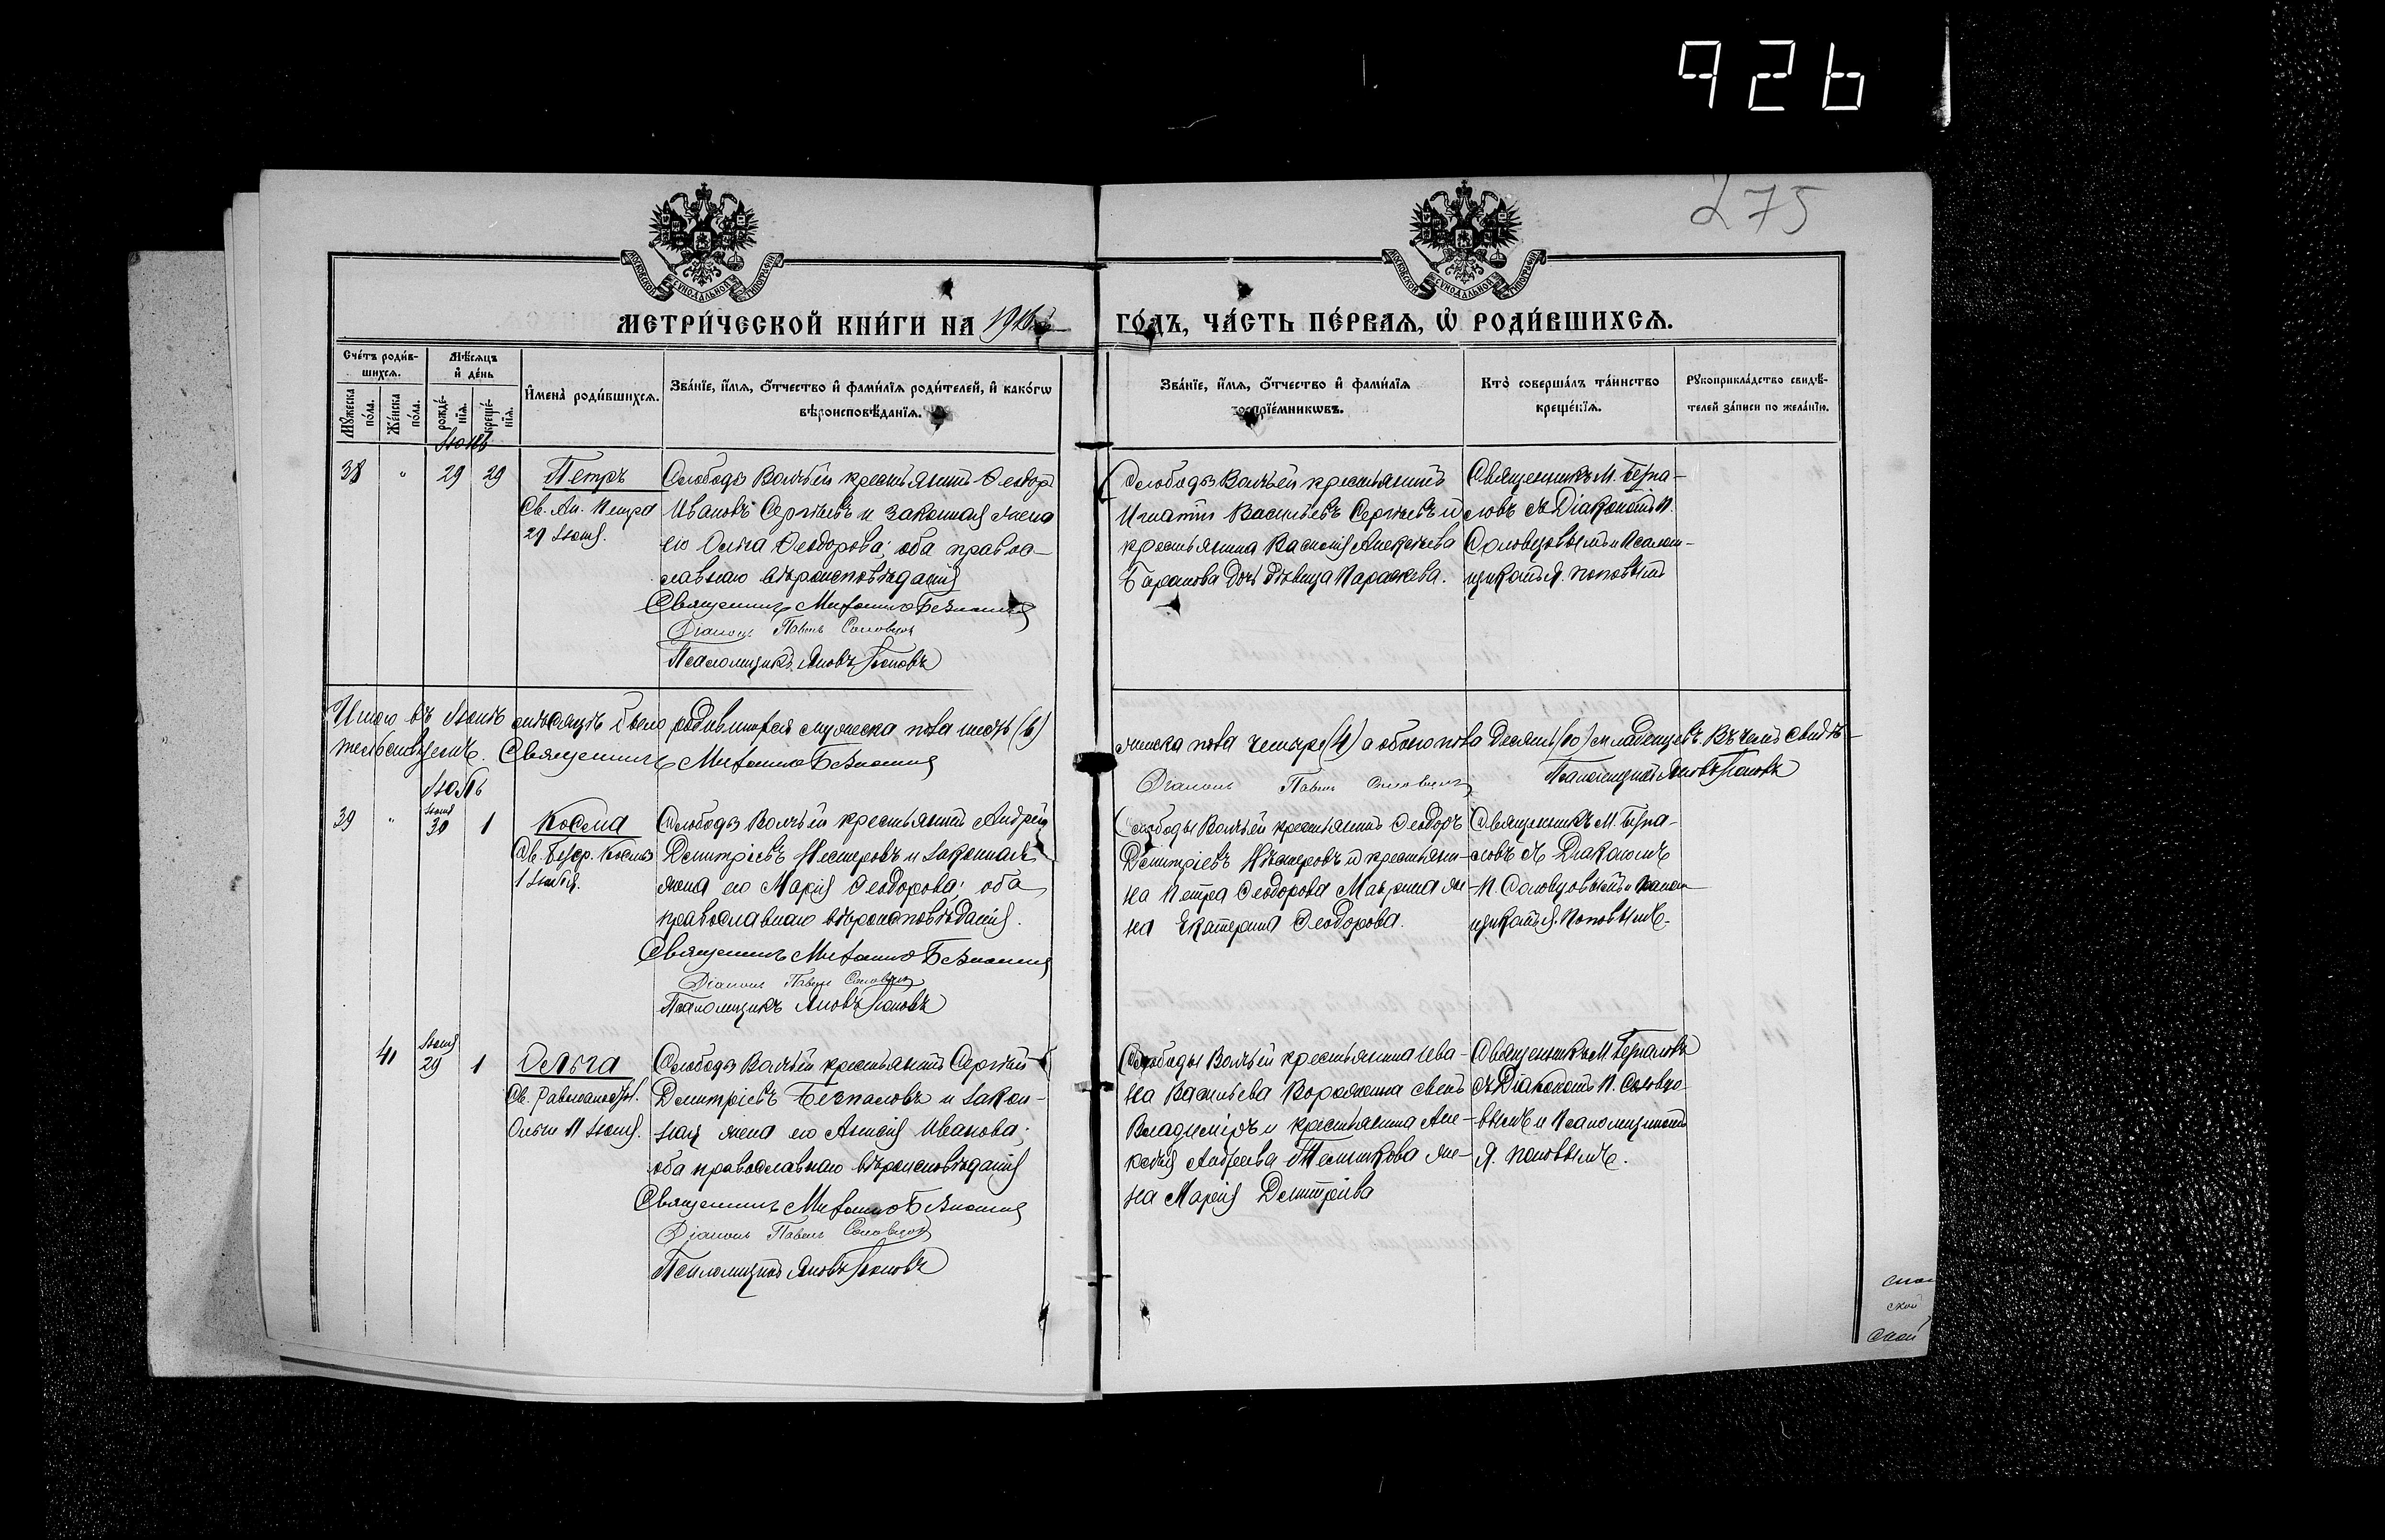 926
275
МЕТРИ́ЧЕСКОЙ КНИ́ГИ НА 1916й
ГО́ДЪ, ЧА́СТЬ ПЕ́РВАЯ, Ѡ҆ РОДИ́ВШИХСЯ.
Сче́тъ роди́в-
шихся.
Мꙋ́жеска
по́ла.
Же́нска
по́ла.
Мѣ́сяцъ
и҆ де́нь
рожде́-
нїя.
креще́-
нїя.
И҆мена̀ роди́вшихся.
Зва́нїе, и҆́мя, ѻ҆́тчество и҆ фами́лїя роди́телей, и҆ како́гѡ
вѣроисповѣ́данїя.
Зва́нїе, и҆́мя, ѻ҆́тчество и҆ фами́лїя
воспрїе́мникѡвъ.
Кто̀ соверша́лъ та́инство
креще́нїя.
Рꙋкоприкла́дство свидѣ́-
телей за́писи по жела́нїю.
Іюнь
38 " 29 29
Петръ
Св. Ап. Петра
29 Іюня.
Слободы Волчьей крестьянинъ Ѳеодоръ
Ивановъ Сергѣевъ и законная жена
его Ольга Ѳеодорова; оба правос-
лавнаго вѣроисповѣданія
Священникъ Митрофанъ
Діаконъ Павелъ Соловцовъ
Псаломщикъ Яковъ Поповъ
Слободы Волчьей крестьянинъ
Игнатій Васильевъ Сергѣевъ и
крестьянина Василія Алексѣева
Баранова дочь дѣвица Параскева.
Священникъ М.
съ Діакономъ П.
Соловцовымъ и Псалом-
щикомъ Я. Поповымъ
Итого въ Іюнѣ мѣсяцѣ было родившихся мужеска пола шесть (6)
женска пола четыре (4) а обоего пола десять (10) младенцевъ. Въ чемъ свидѣ-
тельствуемъ. Священникъ Митрофанъ
Діаконъ Павелъ Соловцовъ
Псаломщикъ Яковъ Поповъ
Іюль
39 " Іюня 30 1
Косма
Св. Безср. Космы
1 Іюля.
Слободы Волчьей крестьянинъ Андрей
Димитріевъ Нестеровъ и законная
жена его Марія Ѳеодорова; оба
православнаго вѣроисповѣданія.
Священникъ Митрофанъ
Діаконъ Павелъ Соловцовъ
Псаломщикъ Яковъ Поповъ
Слободы Волчьей крестьянинъ Ѳеодоръ
Димитріевъ Нестеровъ и крестьяни-
на Петра Ѳеодорова жe-
на Екатерина Ѳеодорова.
Священникъ М.
съ Діакономъ
П. Соловцовымъ и Псалом-
щикомъ Я. Поповымъ.
41 Іюня 29 1
Ольга
Св. Равноапост.
Ольги 11 Іюля.
Слободы Волчьей крестьянинъ Сергѣй
Димитріевъ и закон-
ная жена его Анисія Иванова;
оба православнаго вѣроисповѣданія
Священникъ Митрофанъ
Діаконъ Павелъ Соловцовъ
Псаломщикъ Яковъ Поповъ
Слободы Волчьей крестьянина Ива-
на Васильева сынъ
Владиміръ и крестьянина Але-
ксѣя Андреева же-
на Марія Димитріева
Священникъ М.
съ Діакономъ П. Соловцо-
вымъ и Псаломщикомъ
Я. Поповымъ.